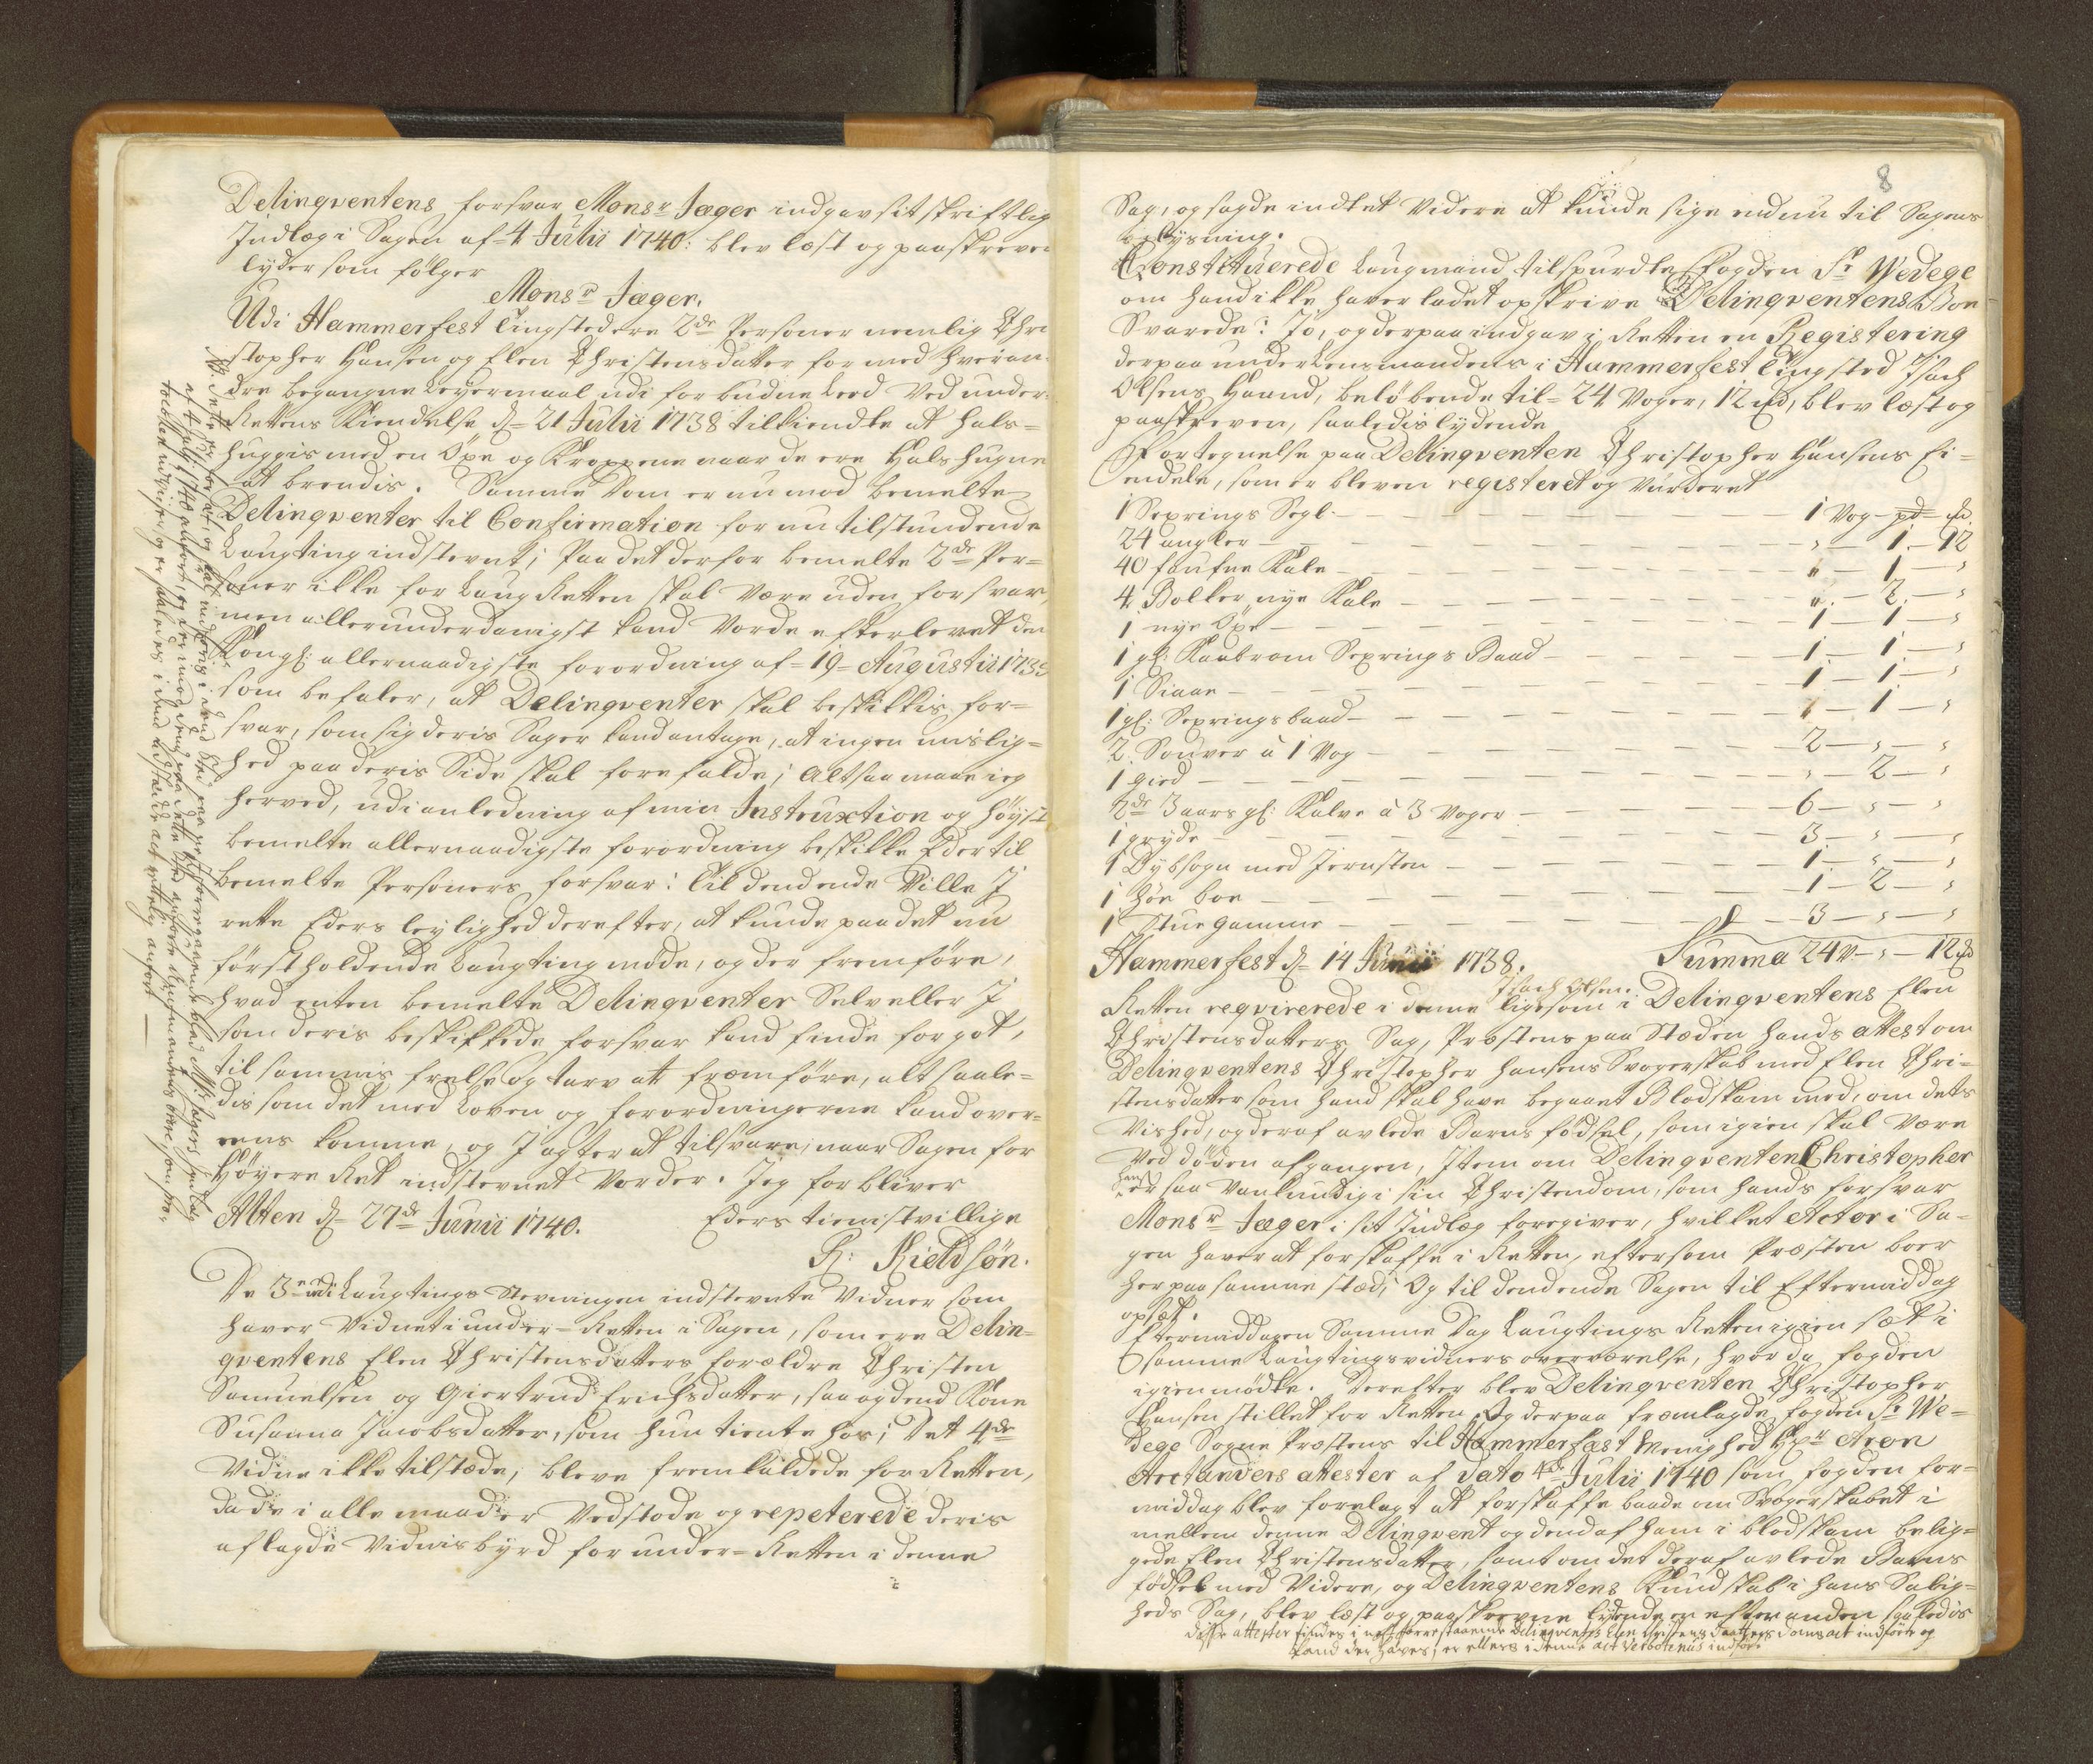 Delinqventens forsvar Monsr Jæger indgav sit skriftlig
Indlæg i Sagen af 4 Julii 1740: blev læst og paaskreven
lyder som følger
Monsr Jæger.
Udi Hammerfest Tingsted ere 2de Personer nemlig Chri
stopher Hansen og Elen Christensdatter for med hveran-
dre begangne Leyermaal udi forbudne Leed Ved under-
Rettens Kiendelse d= 21 Julii 1738 tilkiendte at hals=
huggis med en Öxe og Kroppene naar de ere Halshugne
at brendis. Samme Dom er nu mod bemelte
Delinqventer til Confirmation for nu tilstundende
Laugting indstevnt; Paa det derfor bemelte 2de Per=
soner ikke for Laug Retten skal Være uden forsvar,
men allerunderdanigst kand Vorde efterlevet den
Kongl: allernaadigste forordning af = 19 = Augustii 1735
som befaler, at Delinqventer skal beskikkis for=
svar, som sig deris Sager kand antage, at ingen mislig=
hed paa deris Side skal forefalde; Altsaa maae ieg
herved, udi anledning af min Instruxtion og høyst
bemelte allernaadigste forordning beskikke Eder til
bemelte Personers forsvar: Til dend ende Ville I
rette Eders leylighed derefter, at kunde paa det nu
først holdende Laugting møde, og der fremføre,
hvad enten bemelte Delinqventer Selv eller I
som deris beskikkede forsvar kand finde for got,
til sammis frelse og tarv at fremføre, alt saale=
dis som det med Loven og forordningerne kand over=
eens komme, og I agter at tilsvare, naar Sagen for
Høyere Ret indstevnet Vorder. Jeg forbliver
Alten d= 27de Junii 1740. Eders tienistvillige
K: Kieldsøn.
De 3de udi Laugtings Stevningen indstevnte Vidner som
haver Vidnet i under=Retten i Sagen, som ere Delin=
qventens Elen Christensdatters forældre Christen
Samuelsen og Giertrud Erichsdatter, saa og dend Kone
Susanna Jacobsdatter, som hun tiente hos; Det 4de
Vidne ikke tilstæde, bleve fremkaldede for Retten,
da de i alle maader Vedstode og repeterede deris
aflagde Vidnisbyrd for under=Retten i denne
8
Sag, og sagde indtet Videre at kunde sige endnu til Sagens
oplysning.
Constituerede Laugmand tilspurdte Fogden Sr Wedege
om hand ikke haver ladet opskrive Delinqventens Boe
Svarede: Jo, og derpaa indgav i Retten en Registering
derpaa under Lensmandens i Hammerfest Tingsted Isach
Olsens Haand, beløbende til = 24 Voger, 12 md, blev læst og
paaskreven, saaledis lydende
Fortegnelse paa Delinqventen Christopher Hansens Ei=
endele, som er bleven registeret og Vurderet
1 Sexrings Segl — 1 Vog — pd — md.
24 angler — " — 1 — 12
40 faufne Kale — " — 1 — "
4 Bolker nye Kale — " — 2 — "
1 nye Öxe — 1 — 1 — "
1 gl: Sexrings Baad — 1 — 1 — "
1 — 1 — 1 — "
1 gl: Sexrings baad — 1 — "
2 Souver a 1 Vog — 2 — " — "
1 gied — " — 2 — "
2de 3 aars gl: Kalve a 3 Voger — 6 — " — "
1 gryde — 3 — " — "
1 Dybsogn med Jernsten — 1 — " — "
1 høe boe — 1 — 2 — "
1 Stue Gamme — 3 — " — "
Hammerfest d= 14 Junii 1738. Summa 24 V — " — 12 md
Isach Olsen.
Retten reqvirerede i denne ligesom i Delinqventens Elen
Christensdatters Sag, Prestens paa Stæden hands attest om
Delinqventens Christopher Hansens Svogerskab med Elen Chri=
stensdatter som hand skal have begaaet Blodskam med, om dets
Vished, og deraf avlede Barns fødsel, som igien skal Være
Ved døden afgangen, Item om Delinqventen Christopher
Hans er saa Vankundig i sin Christendom, som hands forsvar
Monsr Jæger i sit Indlæg foregiver, hvilket Actor i Sa=
gen haver at forskaffe i Retten, eftersom Præsten boer
her paa samme stæd; Og til dend ende Sagen til Eftermiddag
opsat.
Eftermiddagen Samme Dag Laugtings Retten igien sæt i
samme Laugtingsvidners overværelse, hvor da fogden
igien mødte. Derefter blev Delinqventen Christopher
Hansen stillet for Retten Og derpaa fremlagde fogden Sr We=
dege Sogne Prestens til Hammerfest Menighed Hr Aron
Arctanders attester af dato 4de Julii 1740 som fogden for=
middag blev forelagt at forskaffe baade om Svogerskabet i
mellem denne Delinqvent og dend af ham i blodskam belig=
gede Elen Christensdatter, samt om det deraf avlede Barns
fødsel med Videre, og Delinqventens Kundskab i hans Salig=
heds Sag, blev læst og paaskrevne lydende en efter anden saaledis
disse attester findes i næstforrestaaende Delinqventes Elen Christens daatters doms act indførte og
kand der haves; er ellers i denne act verbotenus indført